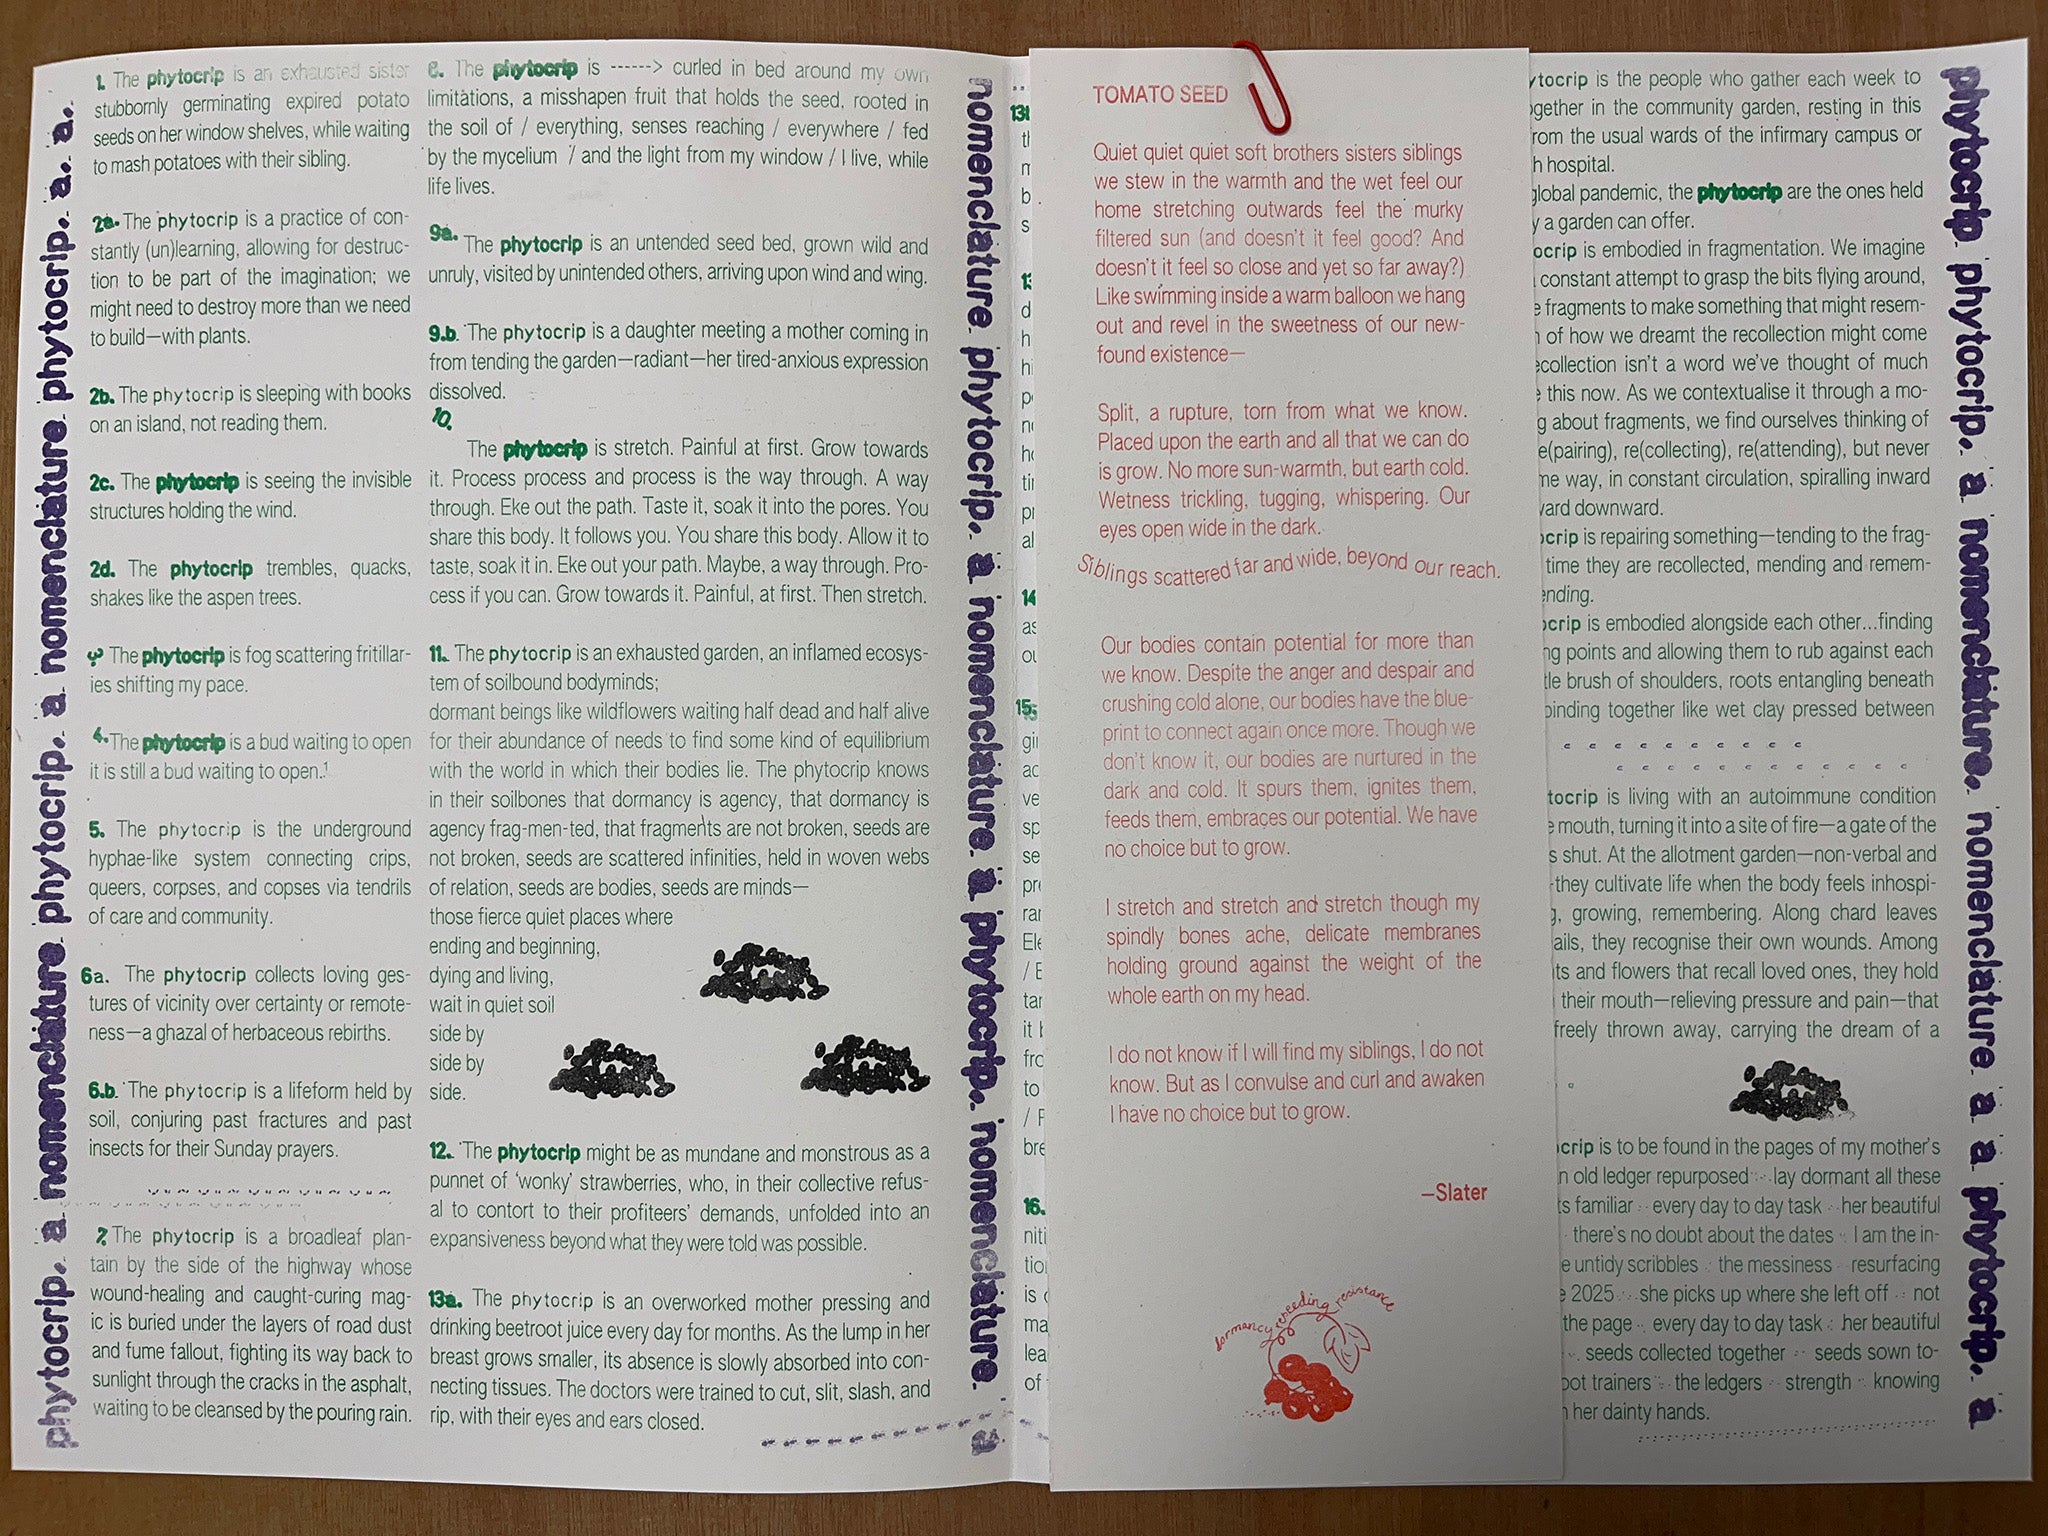 phytocrip. a nomenclature phytocrip. a nomenclature phytocrip. a.
1. The phytocrip is an exhausted sister
stubbornly germinating expired potato
seeds on her window shelves, while waiting
to mash potatoes with their sibling.
2a. The phytocrip is a practice of con-
stantly (un)learning, allowing for destruc-
tion to be part of the imagination; we
might need to destroy more than we need
to build—with plants.
2b. The phytocrip is sleeping with books
on an island, not reading them.
2c. The phytocrip is seeing the invisible
structures holding the wind.
2d. The phytocrip trembles, quacks,
shakes like the aspen trees.
The phytocrip is fog scattering fritillar-
ies shifting my pace.
4. The phytocrip is a bud waiting to open
it is still a bud waiting to open.¹
5. The phytocrip is the underground
hyphae-like system connecting crips,
queers, corpses, and copses via tendrils
of care and community.
6a. The phytocrip collects loving ges-
tures of vicinity over certainty or remote-
ness—a ghazal of herbaceous rebirths.
6.b. The phytocrip is a lifeform held by
soil, conjuring past fractures and past
insects for their Sunday prayers.
7. The phytocrip is a broadleaf plan-
tain by the side of the highway whose
wound-healing and caught-curing mag-
ic is buried under the layers of road dust
and fume fallout, fighting its way back to
sunlight through the cracks in the asphalt,
waiting to be cleansed by the pouring rain.
The phytocrip is ------> curled in bed around my own
limitations, a misshapen fruit that holds the seed, rooted in
the soil of / everything, senses reaching / everywhere / fed
by the mycelium / and the light from my window / I live, while
life lives.
9a. The phytocrip is an untended seed bed, grown wild and
unruly, visited by unintended others, arriving upon wind and wing.
9.b. The phytocrip is a daughter meeting a mother coming in
from tending the garden—radiant—her tired-anxious expression
dissolved.
10.
The phytocrip is stretch. Painful at first. Grow towards
it. Process process and process is the way through. A way
through. Eke out the path. Taste it, soak it into the pores. You
share this body. It follows you. You share this body. Allow it to
taste, soak it in. Eke out your path. Maybe, a way through. Pro-
cess if you can. Grow towards it. Painful, at first. Then stretch.
11. The phytocrip is an exhausted garden, an inflamed ecosys-
tem of soilbound bodyminds;
dormant beings like wildflowers waiting half dead and half alive
for their abundance of needs to find some kind of equilibrium
with the world in which their bodies lie. The phytocrip knows
in their soilbones that dormancy is agency, that dormancy is
agency frag-men-ted, that fragments are not broken, seeds are
not broken, seeds are scattered infinities, held in woven webs
of relation, seeds are bodies, seeds are minds—
those fierce quiet places where
ending and beginning,
dying and living,
wait in quiet soil
side by
side by
side.
12. The phytocrip might be as mundane and monstrous as a
punnet of 'wonky' strawberries, who, in their collective refus-
al to contort to their profiteers' demands, unfolded into an
expansiveness beyond what they were told was possible.
13a. The phytocrip is an overworked mother pressing and
drinking beetroot juice every day for months. As the lump in her
breast grows smaller, its absence is slowly absorbed into con-
necting tissues. The doctors were trained to cut, slit, slash, and
rip, with their eyes and ears closed.
nomenclature. phytocrip. a nomenclature a phytocrip. nomenclature. a
14
15.
16.
TOMATO SEED
Quiet quiet quiet soft brothers sisters siblings
we stew in the warmth and the wet feel our
home stretching outwards feel the murky
filtered sun (and doesn't it feel good? And
doesn't it feel so close and yet so far away?)
Like swimming inside a warm balloon we hang
out and revel in the sweetness of our new-
found existence—
Split, a rupture, torn from what we know.
Placed upon the earth and all that we can do
is grow. No more sun-warmth, but earth cold.
Wetness trickling, tugging, whispering. Our
eyes open wide in the dark.
Siblings scattered far and wide, beyond our reach.
Our bodies contain potential for more than
we know. Despite the anger and despair and
crushing cold alone, our bodies have the blue-
print to connect again once more. Though we
don't know it, our bodies are nurtured in the
dark and cold. It spurs them, ignites them,
feeds them, embraces our potential. We have
no choice but to grow.
I stretch and stretch and stretch though my
spindly bones ache, delicate membranes
holding ground against the weight of the
whole earth on my head.
I do not know if I will find my siblings, I do not
know. But as I convulse and curl and awaken
I have no choice but to grow.
—Slater
dormancy reseeding resistance
ytocrip is the people who gather each week to
gether in the community garden, resting in this
rom the usual wards of the infirmary campus or
h hospital.
global pandemic, the phytocrip are the ones held
y a garden can offer.
ocrip is embodied in fragmentation. We imagine
constant attempt to grasp the bits flying around,
e fragments to make something that might resem-
of how we dreamt the recollection might come
ecollection isn't a word we've thought of much
this now. As we contextualise it through a mo-
g about fragments, we find ourselves thinking of
e(pairing), re(collecting), re(attending), but never
me way, in constant circulation, spiralling inward
ward downward.
ocrip is repairing something—tending to the frag-
time they are recollected, mending and remem-
ending.
ocrip is embodied alongside each other...finding
ng points and allowing them to rub against each
tle brush of shoulders, roots entangling beneath
binding together like wet clay pressed between
tocrip is living with an autoimmune condition
e mouth, turning it into a site of fire—a gate of the
s shut. At the allotment garden—non-verbal and
they cultivate life when the body feels inhospi-
g, growing, remembering. Along chard leaves
ails, they recognise their own wounds. Among
ts and flowers that recall loved ones, they hold
their mouth—relieving pressure and pain—that
freely thrown away, carrying the dream of a
crip is to be found in the pages of my mother's
n old ledger repurposed lay dormant all these
s familiar every day to day task her beautiful
there's no doubt about the dates I am the in-
e untidy scribbles the messiness resurfacing
2025 she picks up where she left off not
the page every day to day task her beautiful
seeds collected together seeds sown to-
oot trainers the ledgers strength knowing
her dainty hands.
phytocrip phytocrip. a nomenclature. nomenclature a a phytocrip. a